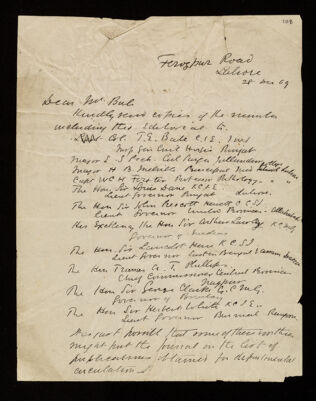 108
Ferozpur Road
Lahore
28 Dec 09
Dear Mr Bub
Kindly send copies of the number
including this Editorial to.
Lieut Col. T. E. Bate C.I.E. I M S
Insp Gen Civil Punjab
Major E S Peck Jullundur
Major H B
Capt W C H
The Hon. Sir Louis Dane K C I E
Lieut Governor Punjab Lahore.
The Hon Sir John Prescott Hewett C C S I
Lieut Governor United Provinces. Allahabad
His Excellency the Hon Sir Arthur Lawley K C M G
Governor of Madras
The Hon. Sir Lancelot Hare K C S I
Lieut Governor Eastern Bengal & Assam
The Hon G. T. Phillips
Chief Commissioner Central Provinces
Nagpur
The Hon Sir George Clarke G. C M G.
Governor of Bombay
The Hon Sir Herbert White K C I E.
Lieut Governor Burmah Rangoon.
It is just possible that some of these worthies
might put the journal on the list of
publications obtained for departmental
circulation.